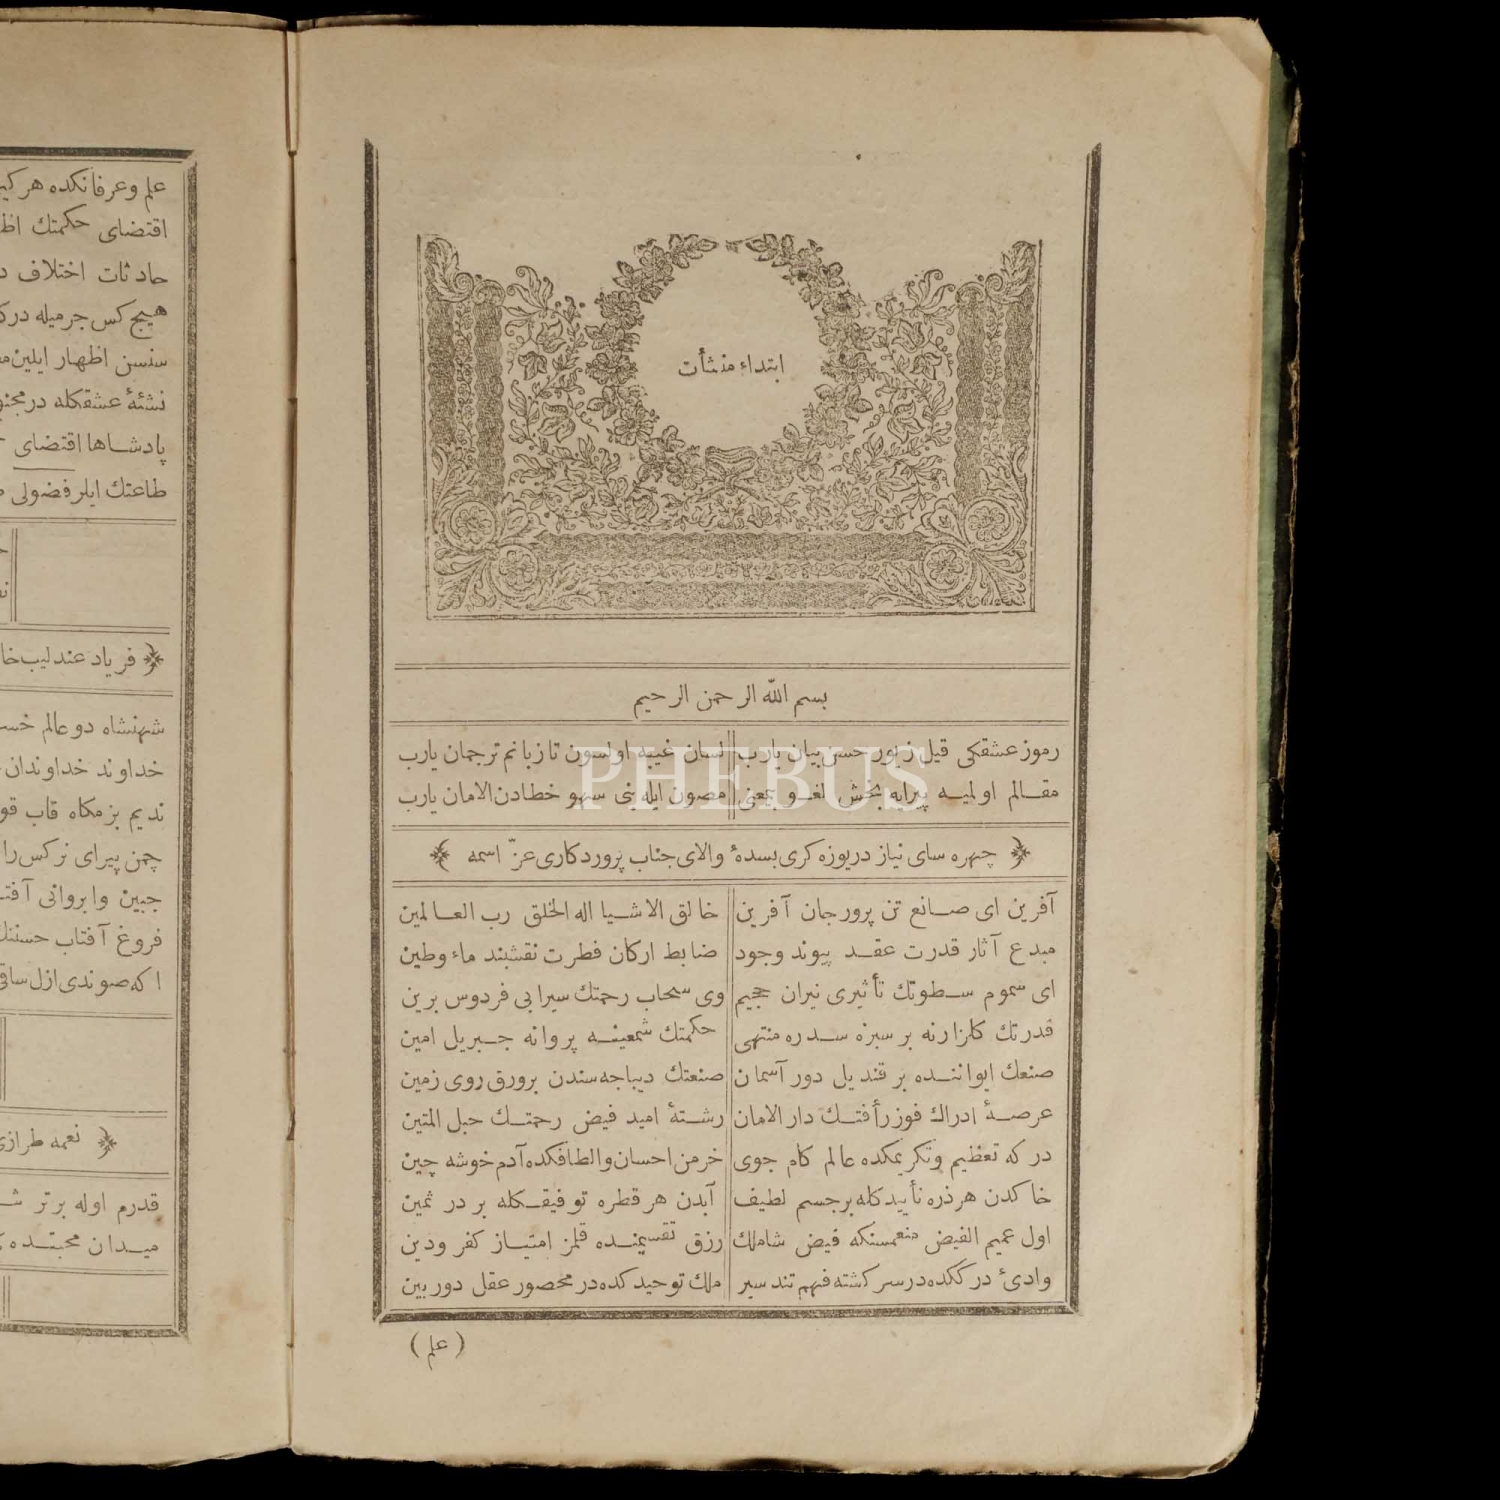 ابتداء منشأت
بسم الله الرحمن الرحيم
رموز عشقكى قيل زيور حسن بيان يارب لسان غيبه اولسون تا زبانم ترجمان يارب
مقالم اولميه پيرايه بخش لغو بمعنى مصون ايله بنى سهو خطادن الامان يارب
چهره ساى نياز دريوزه كرى بسدهٔ والاى جناب پروردكارى عزّ اسمه
آفرين اى صانع تن پرور جان آفرين خالق الاشيا اله الخلق رب العالمين
مبدع آثار قدرت عقد پيوند وجود ضابط اركان فطرت نقشبند ماء وطين
اى سموم سطوتك تأثيرى نيران جحيم وى سحاب رحمتك سيرابى فردوس برين
قدرتك كلزارنه بر سبزه سدره منتهى حكمتك شمعينه پروانه جبريل امين
صنعك ايواننده بر قنديل دور آسمان صنعتك ديباجه سندن بر ورق روى زمين
عرصهٔ ادراك فوز رأفتك دار الامان رشتهٔ اميد فيض رحمتك حبل المتين
دركه تعظيم وتكريمكده عالم كام جوى خرمن احسان والطافكده آدم خوشه چين
خاكدن هر ذره تأييدكله بر جسم لطيف آبدن هر قطره توفيقكله بر در ثمين
اول عميم الفيض منعمسنكه فيض شاملك رزق تقسيمنده قلمز امتياز كفر ودين
وادىٔ دركگده در سركشته فهم تند سير ملك توحيدكده در محصور عقل دوربين
(علم)
علم وعرفانكده هر
اقتضاى حكمتك
حادثات اختلاف
هيچ كس جرميله
سنسن اظهار ايلين
نشئهٔ عشقكله در
پادشاها اقتضاى
طاعتك ايلر فضولى
فرياد عندليب
شهنشاه دو عالم
خداوند خداوندان
نديم بزمكاه قاب
چمن پيراى نركس
جبين وابروانى
فروغ آفتاب حسنك
اكه صوندى ازل
نغمه طرازى
قدرم اوله برتر
ميدان محبتده
PHEBUS